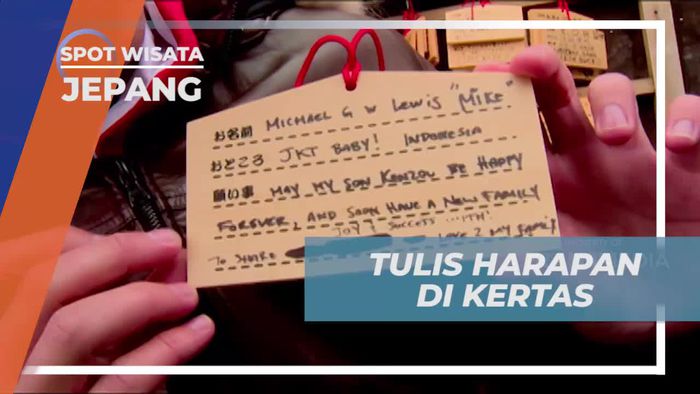 SPOT WISATA
JEPANG
お名前 MICHAEL G W LEWIS "MIKE"
おところ JKT BABY! INDONESIA
願い事 MAY MY SON KENZOU BE HAPPY
FOREVER, AND SOON HAVE A NEW FAMILY
TO SHARE JOY & SUCCESS LOVE 2 MY FAMILY
TULIS HARAPAN
DI KERTAS